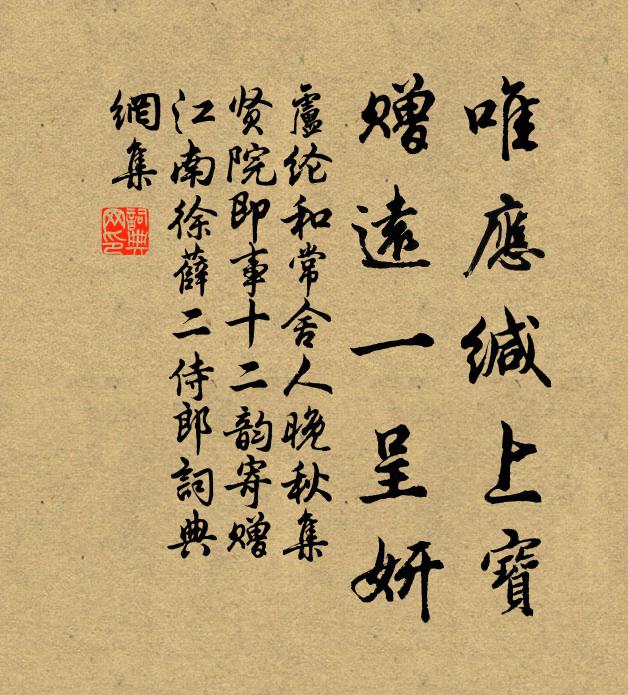 唯應緘上寶
贈遠一呈妍
盧纶和常舍人晚秋集
贤院即事十二韵寄贈
江南徐薛二侍郎詞典
網集
詞典網印